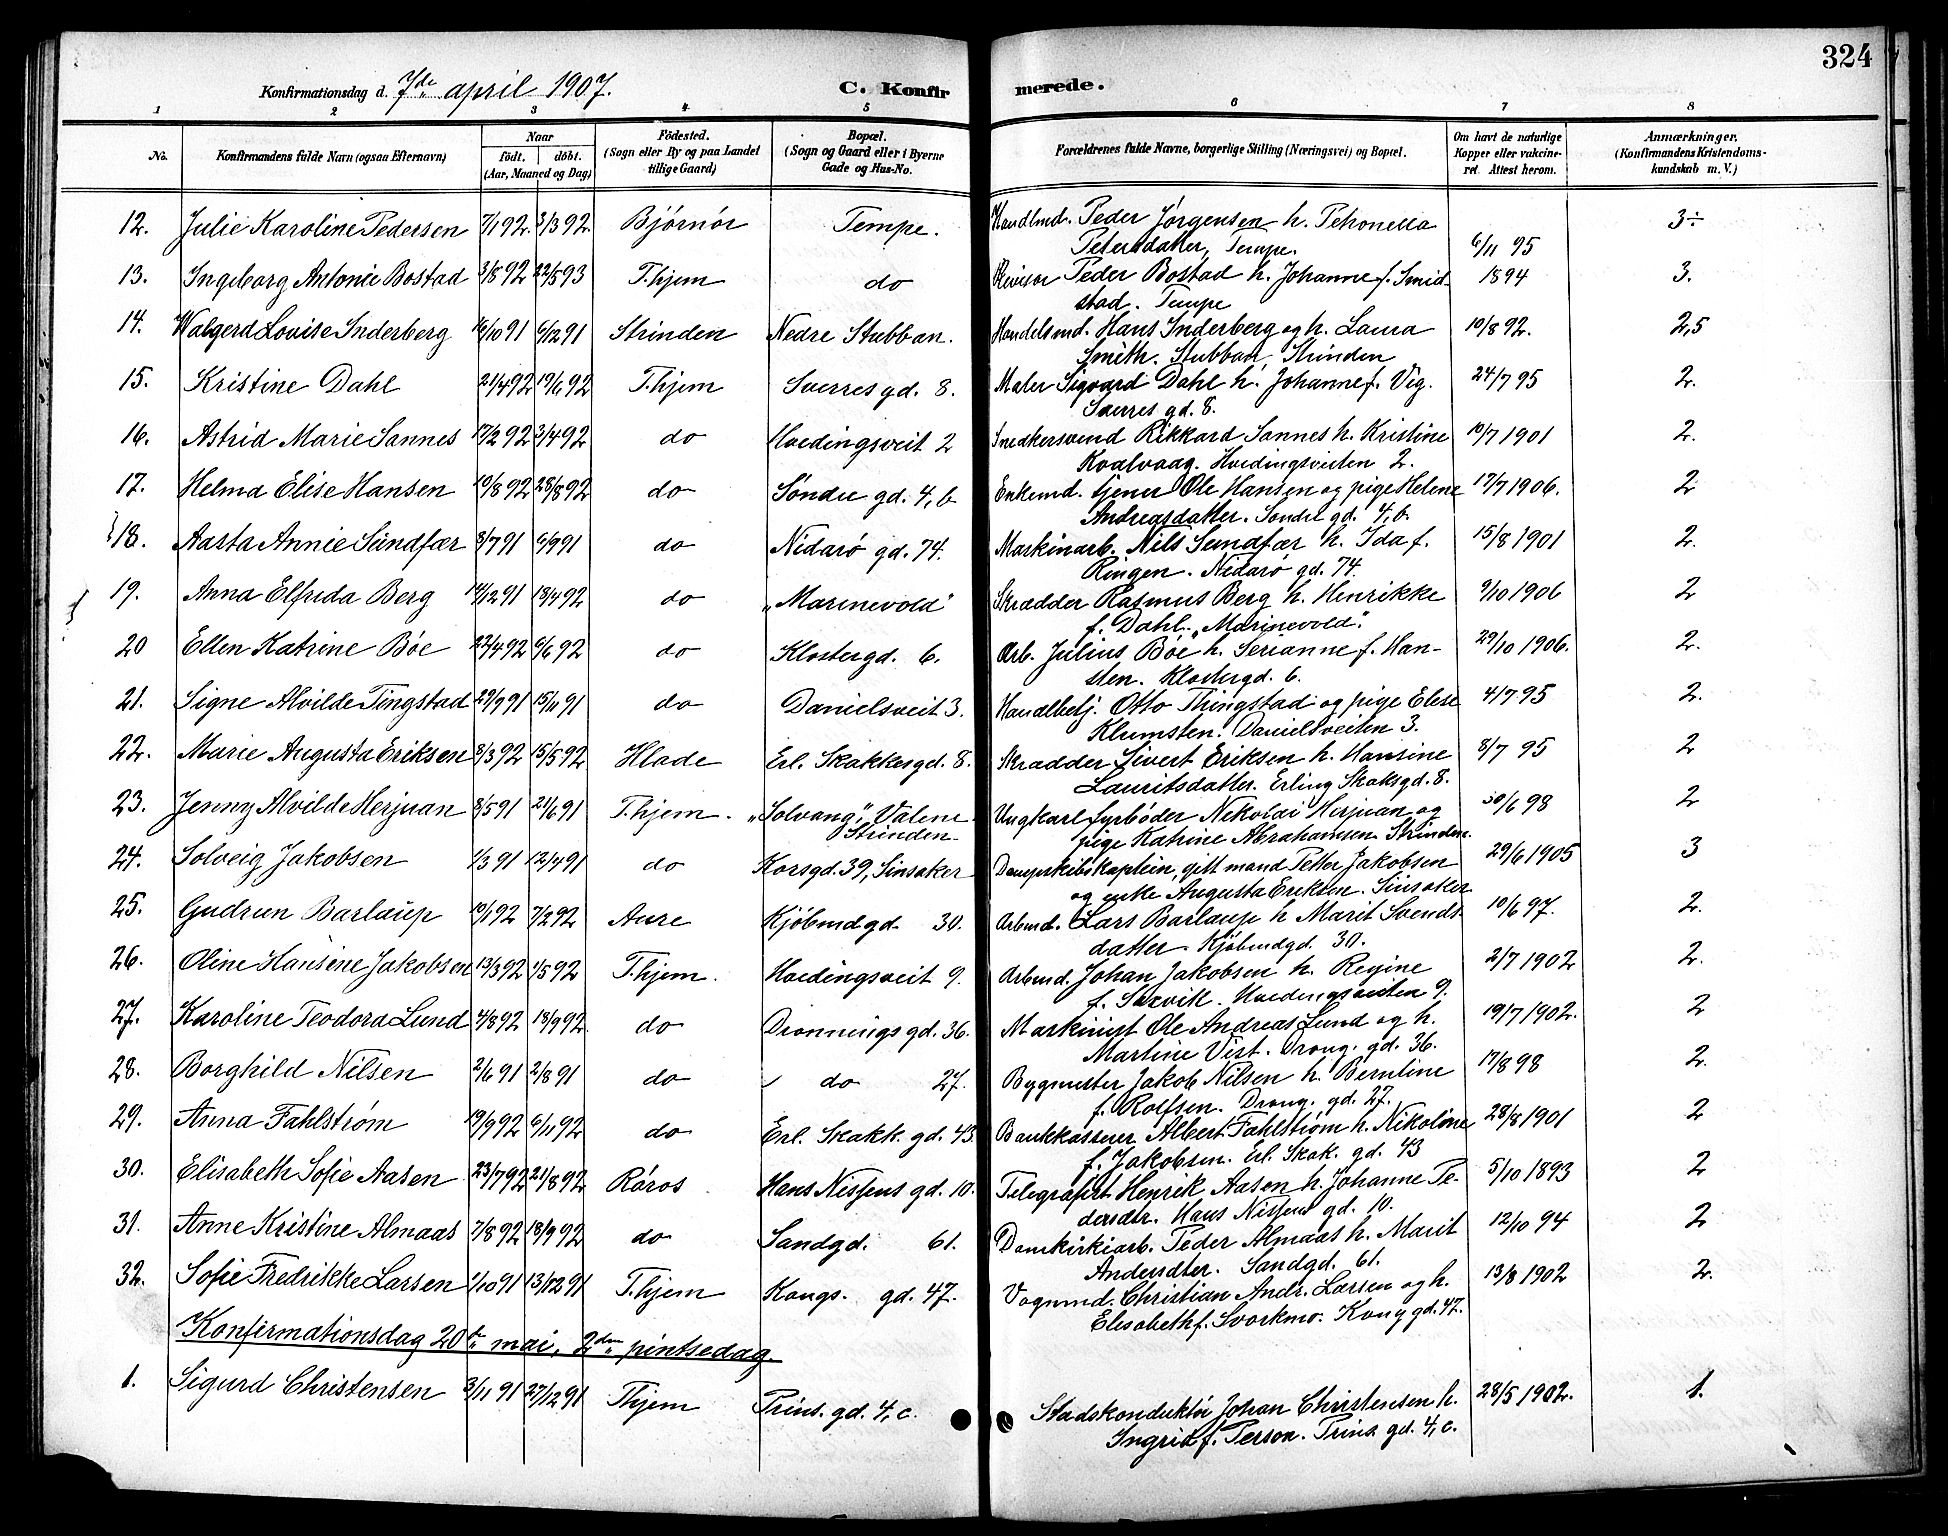 324
Konfirmationsdag d. 7de april 1907.
C. Konfirmerede.
1 2 3 4 5 6 7 8
No. Konfirmandens fulde Navn (ogsaa Efternavn) Naar født. døbt. (Aar, Maaned og Dag) Fødested. (Sogn eller By og paa Landet tillige Gaard) Bopæl. (Sogn og Gaard eller i Byerne Gade og Hus-No. Forældrenes fulde Navne, borgerlige Stilling (Næringsvei) og Bopæl. Om havt de naturlige Kopper eller vakcineret. Attest herom. Anmærkninger. (Konfirmandens Kristendomskundskab m. V.)
12. Julie Karoline Pedersen 7/1 92. 3/3 92. Bjørnør Tempe. Handlmd. Peder Jørgensen h. Petronella 3÷
Petersdatter, Tempe. 6/11 95
13. Ingeborg Antonie Bostad 3/8 92 22/5 93 T.hjem do Revisor Peder Bostad h. Johanne f. Smid- 1894 3.
stad. Tempe
14. Walgerd Lovise Inderberg 16/10 91 6/12 91 Strinden Nedre Stubban. Handelsmd. Hans Inderberg og h. Laura 10/8 92. 2,5
Smith. Stubban Strinden
15. Kristine Dahl 21/4 92 19/6 92 T.hjem Sverres gd. 8. Maler Sigvard Dahl h. Johanne f. Vig. 24/7 95 2.
Sverres gd. 8.
16. Astrid Marie Sannes 17/2 92 3/4 92 do Hvedingsveit 2 Snedkersvend Rikkard Sannes h. Kristine 10/7 1901 2.
Kvalvaag. Hvedingsveiten 2.
17. Helma Elise Hansen 19/8 92 28/8 92 do Søndre gd. 4, b Enkemd. tjener Ole Hansen og pige Helene 17/7 1906. 2
Andreasdatter. Søndre gd. 4, b.
18. Aasta Annie Sundfær 8/7 91 6/9 91 do Nidarø gd. 74. Maskinarb. Nils Sundfær h. Ida f. 15/8 1901 2.
Ringen. Nidarø gd. 74.
19. Anna Elfrida Berg 14/12 91 18/4 92 do „Marinevold" Skrædder Rasmus Berg h. Henrikke 9/10 1906 2
f. Dahl. „Marinevold".
20 Ellen Katrine Bøe 22/4 92 6/6 92 do Klostergd. 6. Arb. Julius Bøe h. Serianne f. Han- 29/10 1906. 2.
sten. Klostergd. 6.
21. Signe Alvilde Tingstad 29/9 91 15/11 91 do Danielsveit 3. Handlbetj. Otto Thingstad og pige Elise 4/7 95 2.
Klumsten. Danielsveiten 3.
22. Marie Augusta Eriksen 8/3 92 15/5 92 Hlade Erl. Skakkesgd. 8. Skrædder Sivert Eriksen h. Hansine 8/7 95 2
Lauritsdatter. Erling Skaksgd. 8.
23. Jenny Alvilde Herjuan 8/5 91 21/6 91 T.hjem. „Solvang", Valene Ungkarl fyrbøder Nikolai Herjuan og 30/6 98 2
Strinden pige Katrine Abrahamsen Strinden.
24. Solveig Jakobsen 1/3 91 12/4 91 do Korsgd. 39, Sinsaker Dampskibskaptein, gift mand Petter Jakobsen 29/6 1905 3
og enke Augusta Eriksen. Sinsaker
25. Gudrun Barlaup 19/1 92 7/2 92 Aure Kjøbmdgd. 30. Arbmd. Lars Barlaup h Marit Svends- 10/6 97. 2.
datter. Kjøbmdgd. 30.
26. Oline Hansine Jakobsen 13/3 92 1/5 92 T.hjem. Hvedingsveit 9. Arbmd. Johan Jakobsen h. Regine 2/7 1902 2.
f. Saxvik. Hvedingsveiten 9.
27. Karoline Teodora Lund 4/8 92 18/9 92. do Dronnings gd. 36. Maskinist Ole Andreas Lund og h. 19/7 1902. 2
Martine Vist. Drong. gd. 36.
28. Borghild Nilsen 2/6 91 2/8 91 do do 27. Bygmester Jakob Nilsen h. Berntine 17/8 98 2.
f. Rolfsen. Drong. gd. 27.
29. Anna Fahlstrøm 19/9 92 6/11 92 do Erl. Skakk. gd. 43. Bankkasserer Albert Fahlstrøm h. Nikoline 28/8 1901 2
f. Jakobsen. Erl. Skak. gd. 43
30. Elisabeth Sofie Aasen 23/7 92 21/8 92 Røros Hans Nissens gd. 10. Telegrafist Henrik Aasen h. Johanne Pe- 5/10 1893 2
dersdtr. Hans Nissens gd. 10.
31. Anne Kristine Almaas 7/8 92 18/9 92 do Sandgd. 61. Domkirkearb. Peder Almaas h. Marit 12/10 94 2
Andersdter. Sandgd. 61.
32. Sofie Fredrikke Larsen 1/10 91 13/12 91 T.hjem Kongs. gd. 47. Vognmd. Christian Andr. Larsen og h. 13/8 1902 2.
Elisabeth f. Svorkmo. Kong gd. 47.
Konfirmationsdag 20de mai, 2den pintsedag.
1. Sigurd Christensen 3/11 91 27/12 91 T.hjem Prins. gd. 4, c. Stadskonduktør Johan Christensen h. 28/5 1902. 1.
Ingrid f. Person. Prins gd. 4, c.